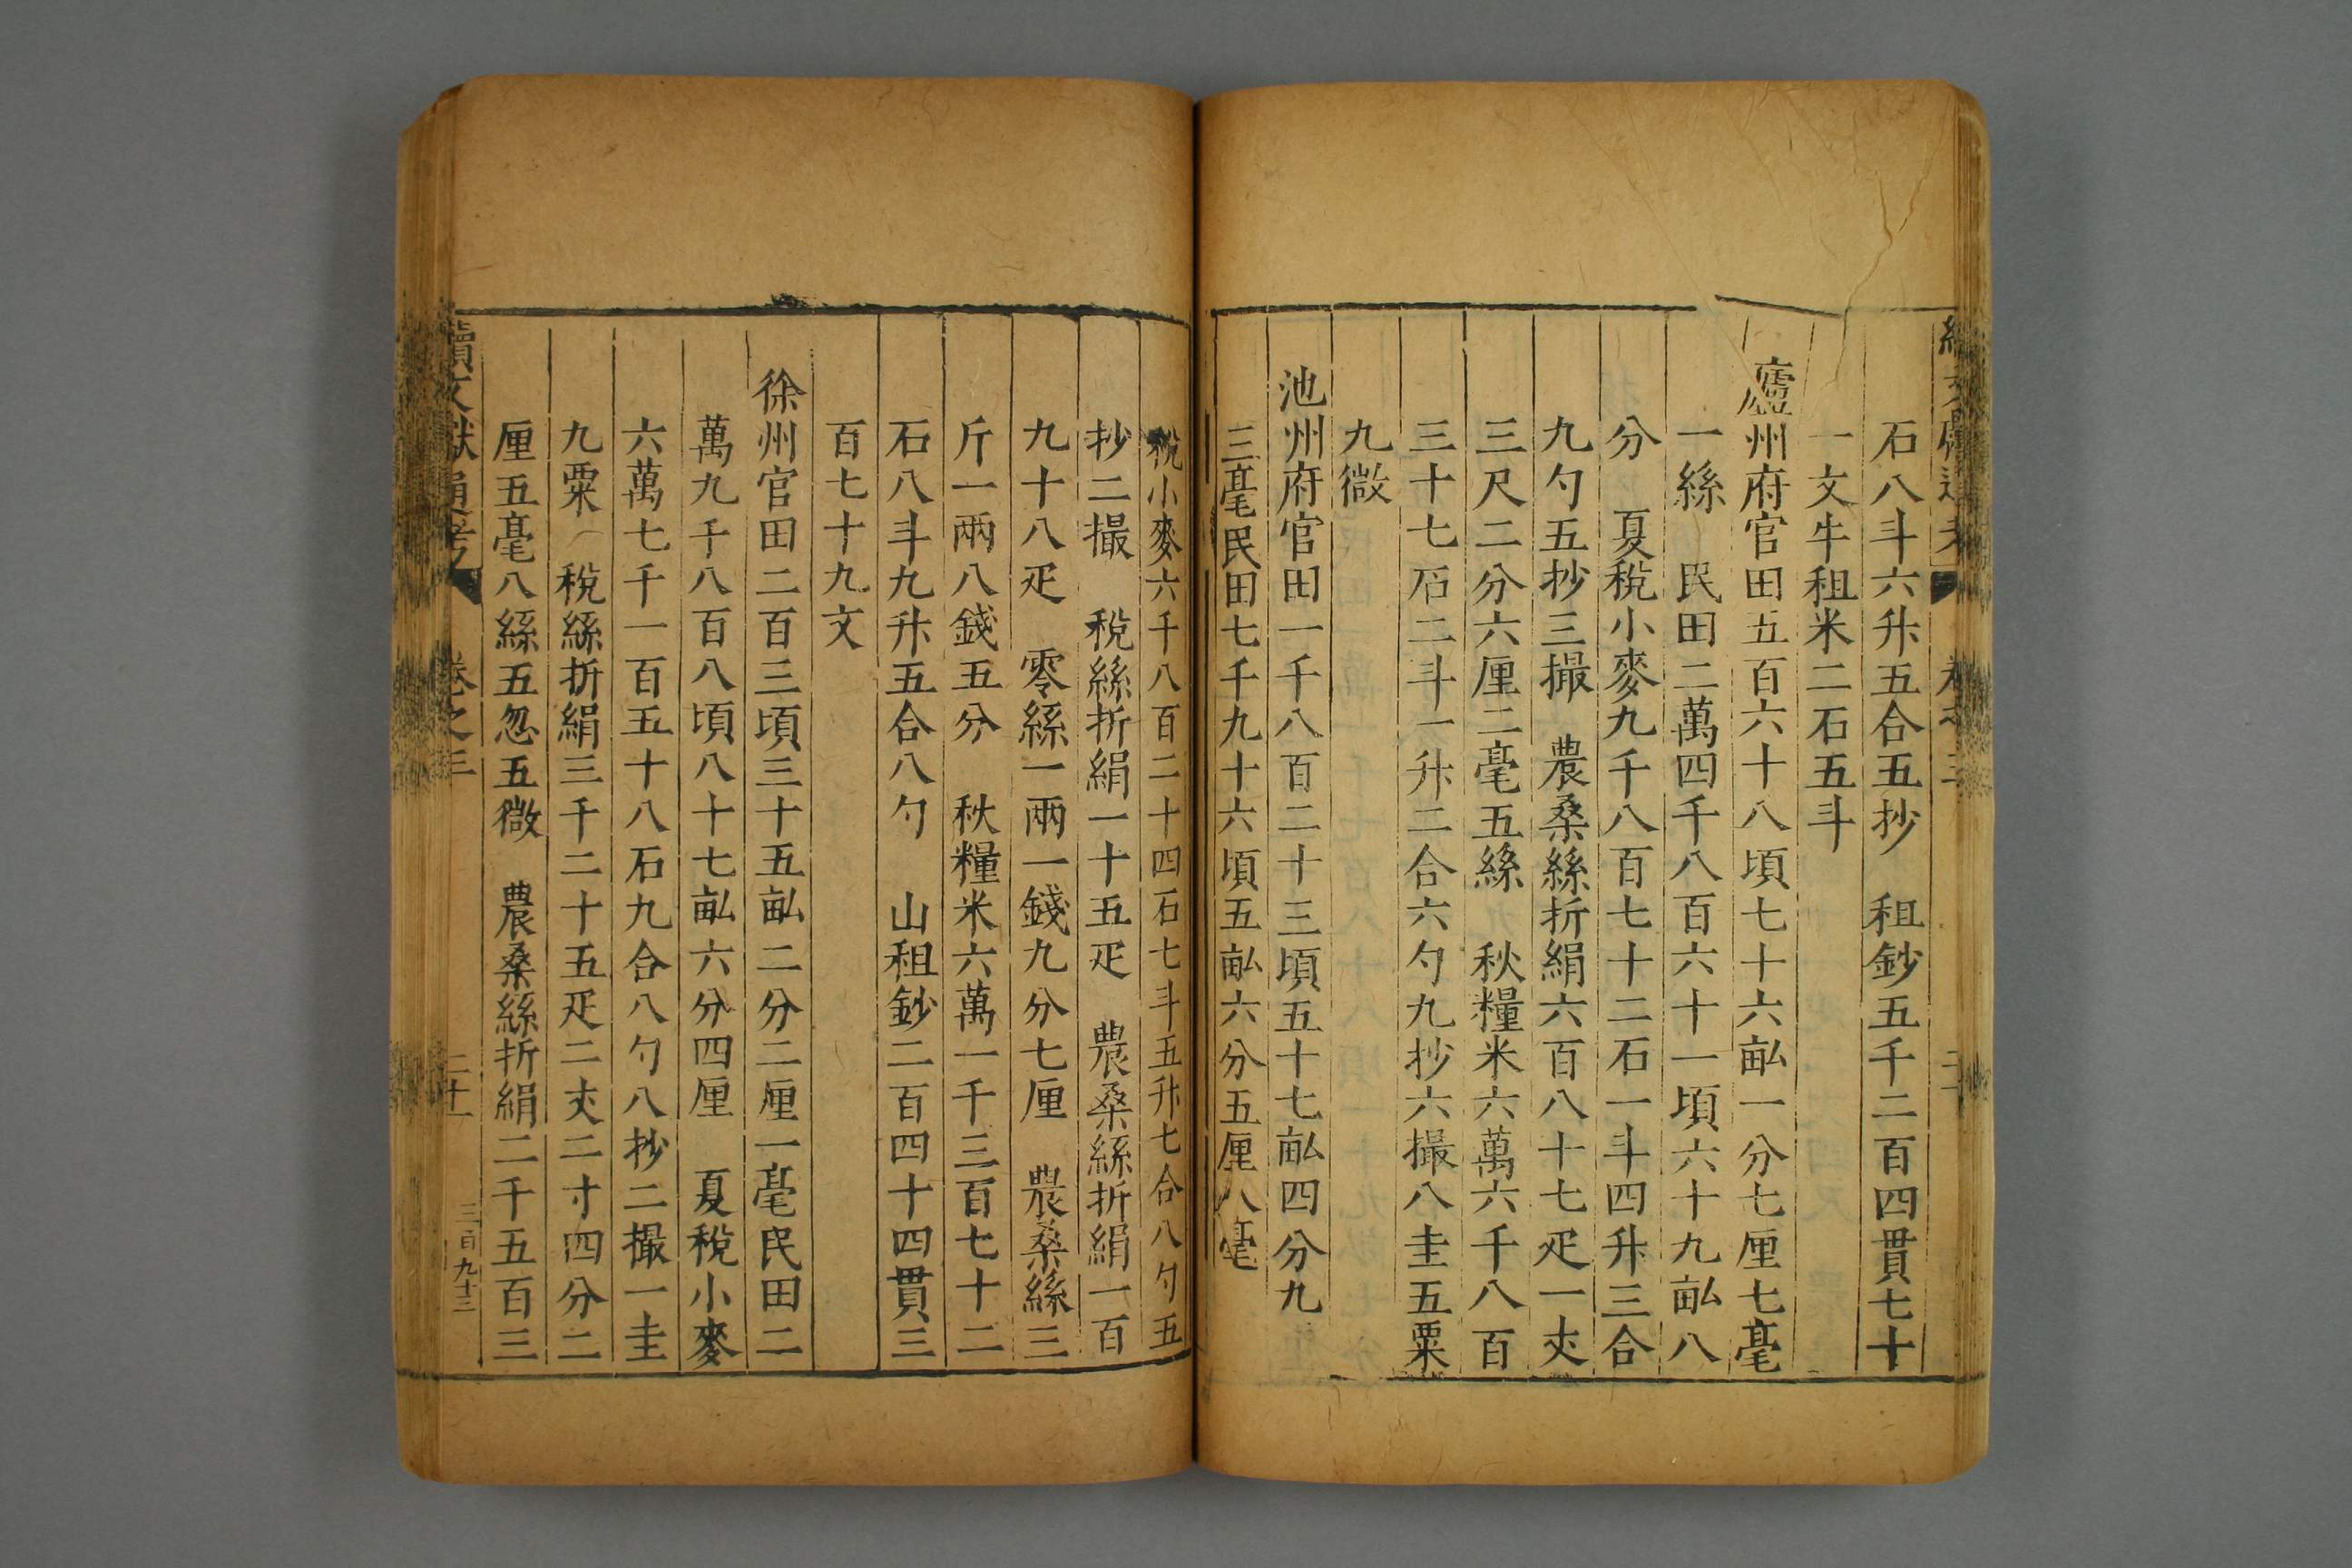 石八斗六升五合五抄　租鈔五千二百四貫七十
一文牛租米二石五斗
廬州府官田五百六十八頃七十六畆一分七厘七毫
一絲　民田二萬四千八百六十一頃六十九畆八
分　夏稅小麥九千八百七十二石一斗四升三合
九勺五抄三撮　農桑絲折絹六百八十七疋一丈
三尺二分六厘二毫五絲　秋糧米六萬六千八百
三十七石二斗一升二合六勺九抄六撮八圭五粟
九微
池州府官田一千八百二十三頃五十七畆四分九
三毫民田七千九十六頃五畆六分五厘八毫
稅小麥六千八百二十四石七斗五升七合八勺五
抄二撮　稅絲折絹一十五疋　農桑絲折絹一百
九十八疋　零絲一兩一錢九分七厘　農桑絲三
斤一兩八錢五分　秋糧米六萬一千三百七十二
石八斗九升五合八勺　山租鈔二百四十四貫三
百七十九文
徐州官田二百三頃三十五畆二分二厘一毫民田二
萬九千八百八頃八十七畆六分四厘　夏稅小麥
六萬七千一百五十八石九合八勺八抄二撮一圭
九粟　稅絲折絹三千二十五疋二丈二寸四分二
厘五毫八絲五忽五微　農桑絲折絹二千五百三
續文獻通考　卷之三　二十一　三百九十三